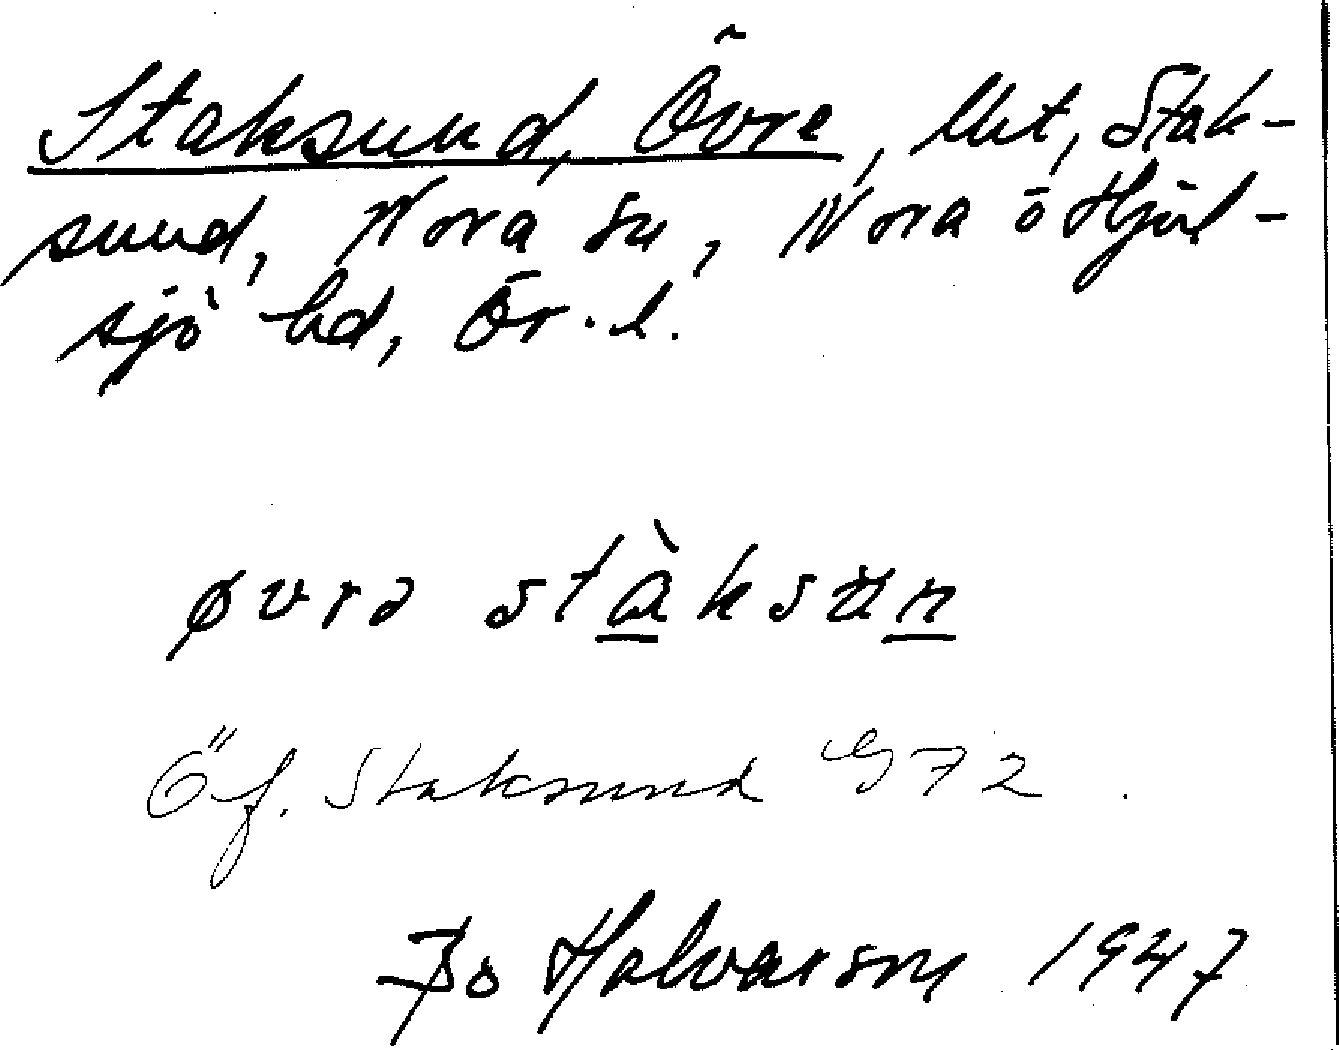 Staksund, Övre, lht, Stak-
sund, Nora sn, Nora ö Hjul-
sjö hd, Ör. l.
øvrə stàksun
Öf. Staksund G 72.
Bo Halvarson 1947